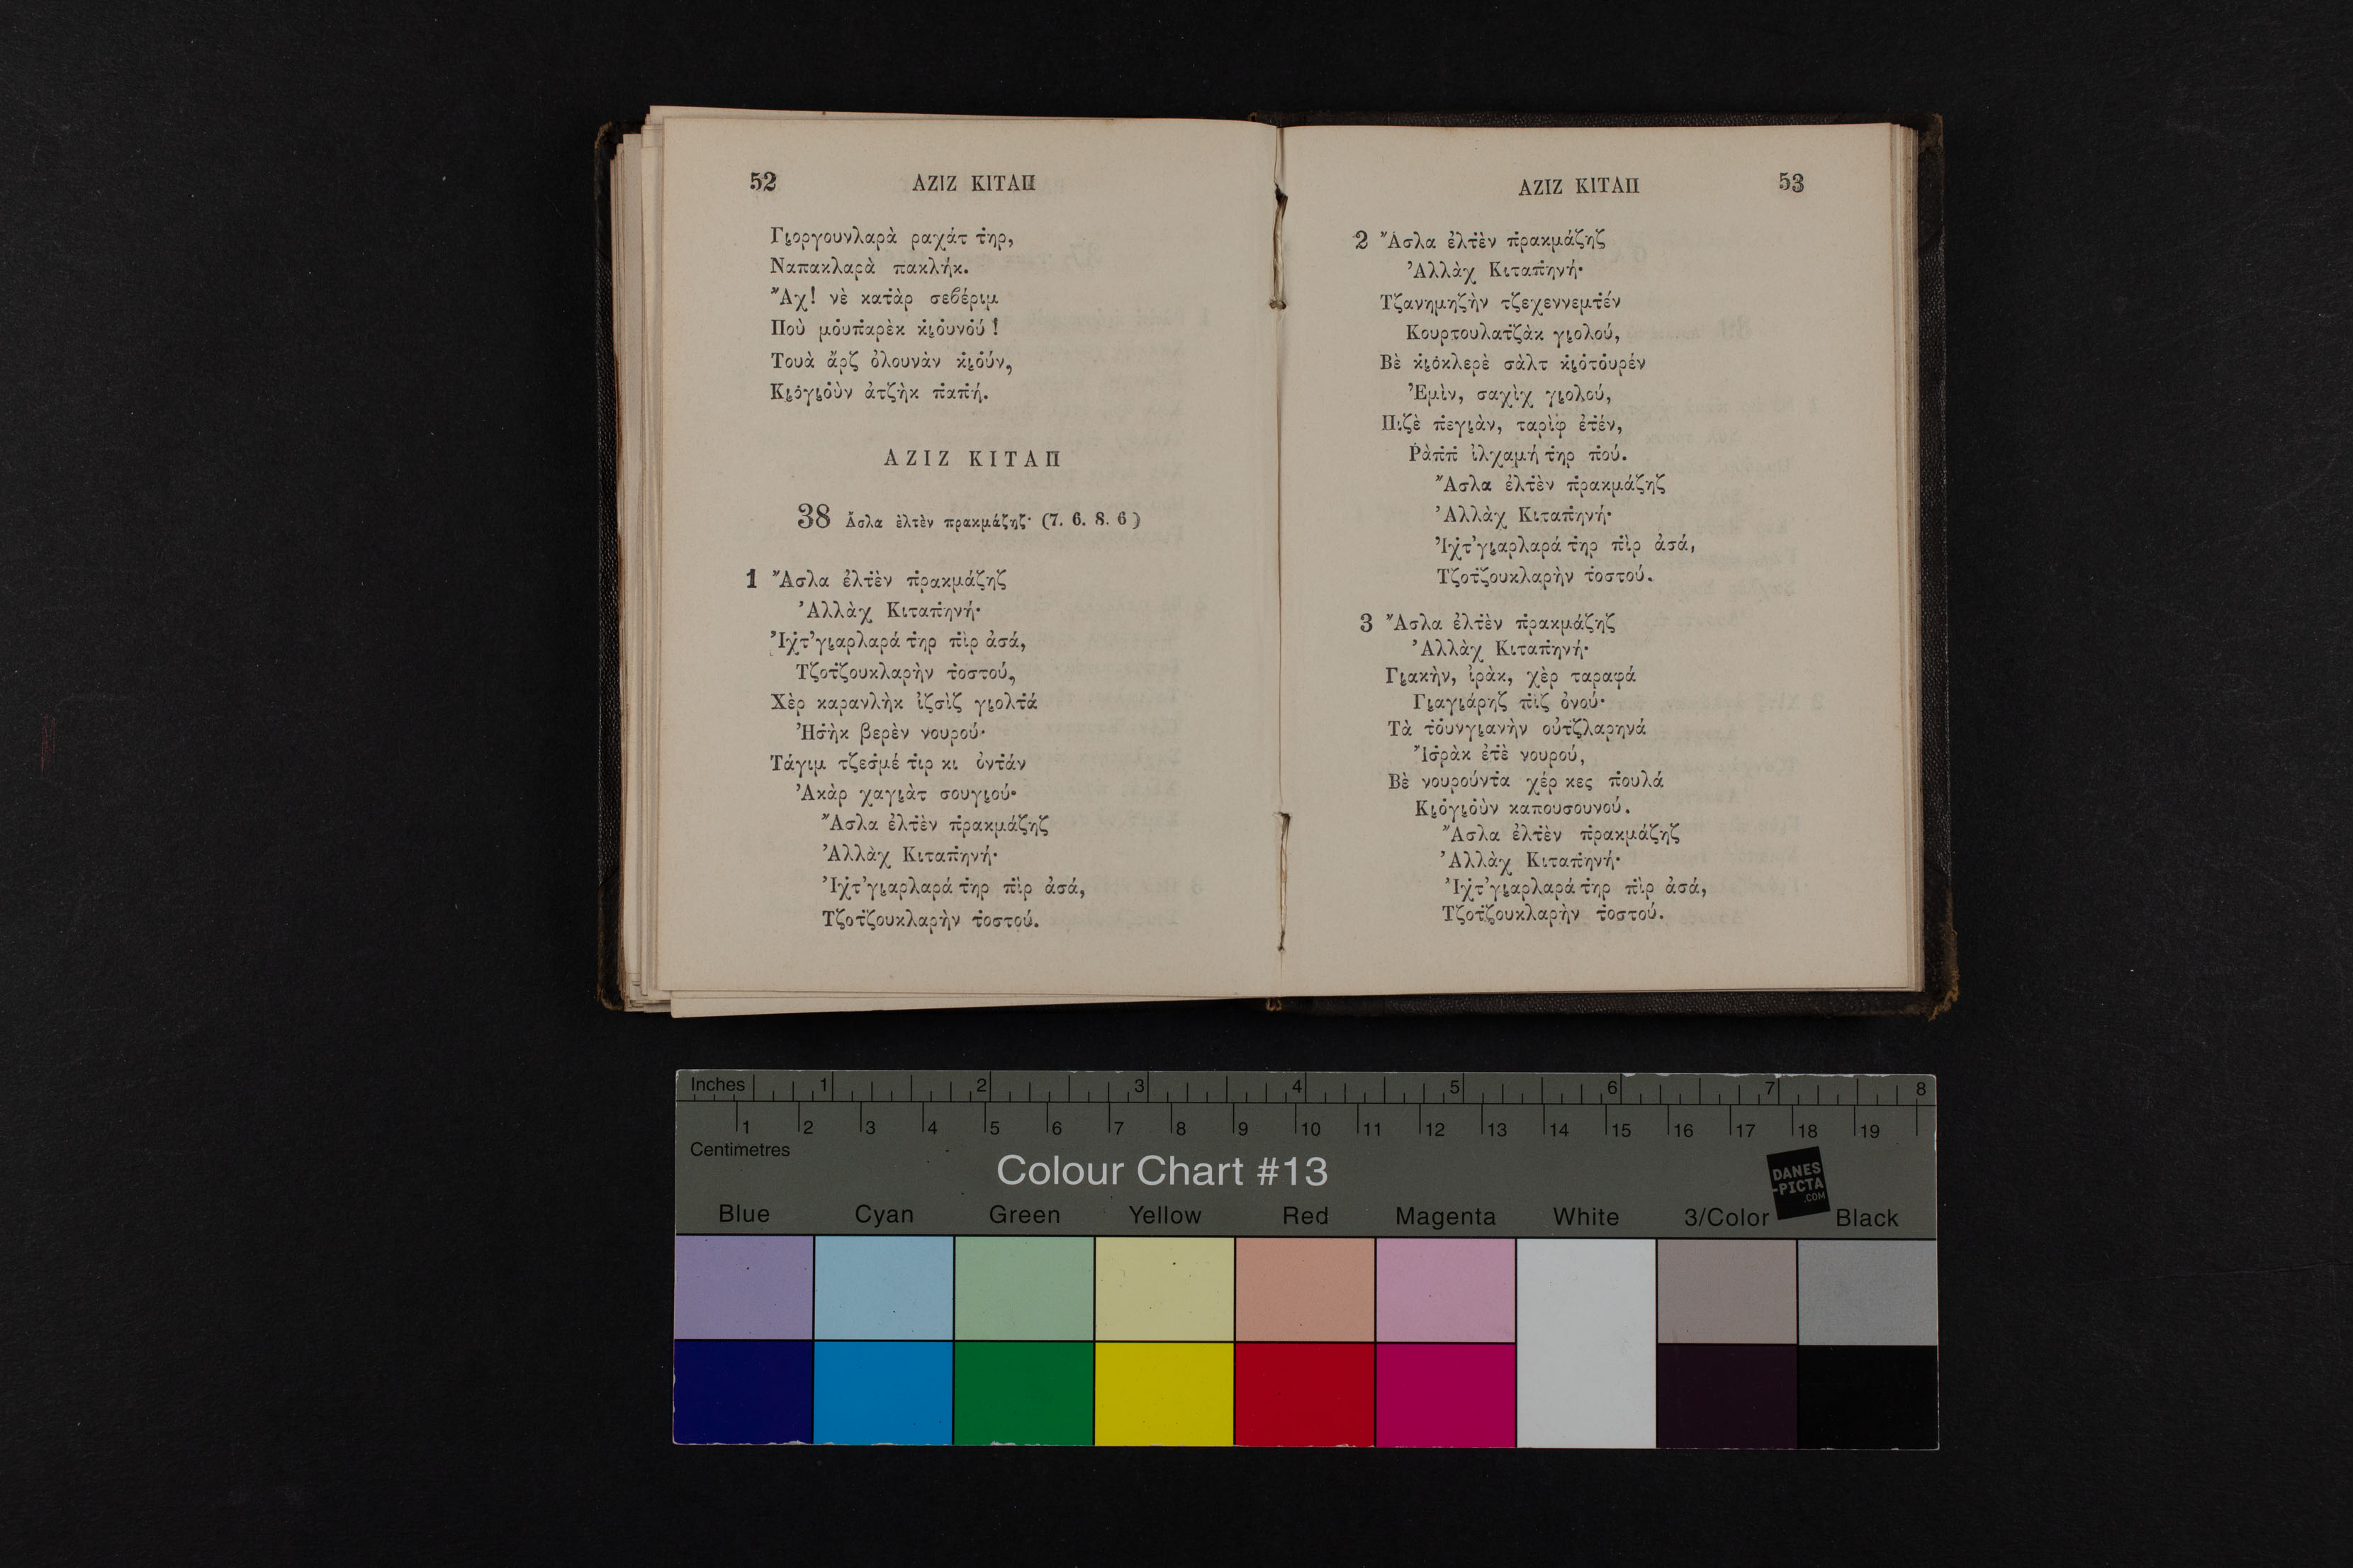 52 ΑΖΙΖ ΚΙΤΑΠ
Γι̥οργουνλαρὰ ραχάτ τ̇ηρ,
Ναπακλαρὰ πακλήκ.
Ἄχ! νὲ κατ̇ὰρ σεβέριμ
Ποὺ μο̇υπ̇αρὲκ κ̇ι̥ο̇υνο̇ύ!
Τουὰ ἄρζ ὀλουνὰν κ̇ι̥ο̇ύν,
Κι̥ο̇γι̥ο̇ὺν ἀτζὴκ π̇απ̇ή.
ΑΖΙΖ ΚΙΤΑΠ
38 Ἄσλα ἐλτὲν πρακμάζηζ· (7. 6. 8. 6)
1 Ἄσλα ἐλτ̇ὲν π̇ρακμάζηζ
Ἀλλὰχ Κιταπ̇ηνή·
Ἰχ̇τ'γι̥αρλαρά τ̇ηρ π̇ὶρ ἀσά,
Τζοτ̇ζουκλαρὴν τ̇οστού,
Χὲρ καρανλὴκ ἰζσὶζ γι̥ολτ̇ά
Ἠσ̇ὴκ βερὲν νουρού·
Τάγιμ τζεσ̇μέ τ̇ιρ κι ὀντ̇άν
Ἀκὰρ χαγι̥ὰτ σουγι̥ού·
Ἄσλα ἐλτ̇ὲν π̇ρακμάζηζ
Ἀλλὰχ Κιταπ̇ηνή·
Ἰχ̇τ'γι̥αρλαρά τ̇ηρ π̇ὶρ ἀσά,
Τζοτ̇ζουκλαρὴν τ̇οστού.
ΑΖΙΖ ΚΙΤΑΠ 53
2 Ἄσλα ἐλτ̇ὲν π̇ρακμάζηζ
Ἀλλὰχ Κιταπ̇ηνή·
Τζανημηζὴν τζεχεννεμτ̇έν
Κουρτουλατ̇ζὰκ γι̥ολού,
Βὲ κ̇ι̥ο̇κλερὲ σὰλτ κ̇ι̥ο̇το̇υρέν
Ἐμὶν, σαχὶχ γι̥ολού,
Πιζὲ π̇εγι̥ὰν, ταρὶφ ἐτ̇έν,
Ῥὰπ̇π̇ ἰλχαμή τ̇ηρ π̇ού.
Ἄσλα ἐλτ̇ὲν π̇ρακμάζηζ
Ἀλλὰχ Κιταπ̇ηνή·
Ἰχ̇τ'γι̥αρλαρά τ̇ηρ π̇ὶρ ἀσά,
Τζοτ̇ζουκλαρὴν τ̇οστού.
3 Ἄσλα ἐλτ̇ὲν π̇ρακμάζηζ
Ἀλλὰχ Κιταπ̇ηνή·
Γι̥ακὴν, ἰρὰκ, χὲρ ταραφά
Γι̥αγι̥άρηζ π̇ὶζ ὀνού·
Τὰ το̇υνγι̥ανὴν οὐτ̇ζλαρηνά
Ἰσ̇ρὰκ ἐτ̇ὲ νουρού,
Βὲ νουρούντ̇α χέρ κες π̇ουλά
Κι̥ο̇γι̥ο̇ὺν καπουσουνού.
Ἄσλα ἐλτ̇ὲν π̇ρακμάζηζ
Ἀλλὰχ Κιταπ̇ηνή·
Ἰχ̇τ'γι̥αρλαρά τ̇ηρ π̇ὶρ ἀσά,
Τζοτ̇ζουκλαρὴν τ̇οστού.
Inches 1 2 3 4 5 6 7 8
1 2 3 4 5 6 7 8 9 10 11 12 13 14 15 16 17 18 19
Centimetres
Colour Chart #13
DANES
-PICTA
.COM
Blue Cyan Green Yellow Red Magenta White 3/Color Black